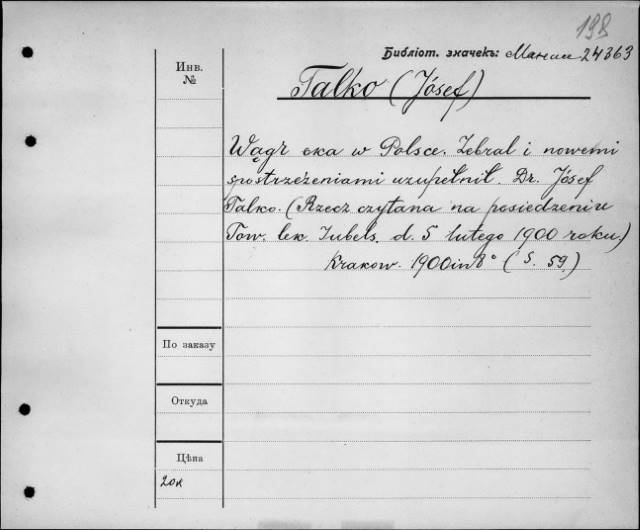 198
Библіот. значекъ: 24363
Инв.
№
Talko (Jósef)
Wągr oka w Polsce. Zebral i nowemi
spostrzeżeniami uzupełnił. Dr. Jósef
Talko. (Rzecz czytana na posiedzeniu
Tow. lek. Lubels. d. 5 lutego 1900 roku.)
Krakow. 1900 in 8° (S. 59.)
По заказу
Откуда
Цѣна
20к